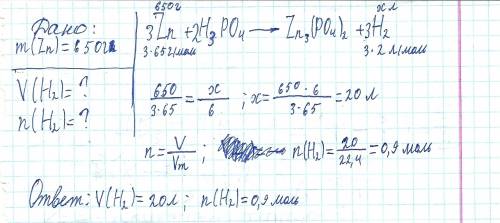 Дано:
m(Zn)=650г
V(H₂)=?
n(H₂)=?
650г x л
3Zn + 2H₃PO₄ → Zn₃(PO₄)₂ + 3H₂
3·65г/моль 3·2 л/моль
650/3·65 = x/6 ; x = 650·6/3·65 = 20 л
n = V/Vm ; n(H₂) = 20/22,4 = 0,9 моль
Ответ: V(H₂)=20л; n(H₂)=0,9 моль